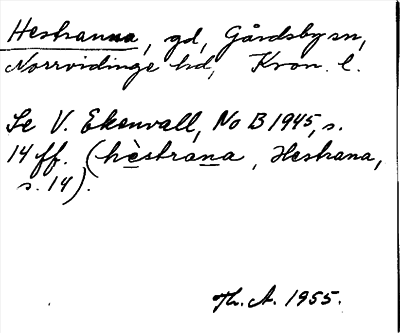 Hestranna, gd, Gårdsby sn,
Norrvidinge hd, Kron. l.
Se V. Ekenvall, No B 1945, s.
14 ff. (hèstrana, Hestrana,
s. 14).
Th. A. 1955.